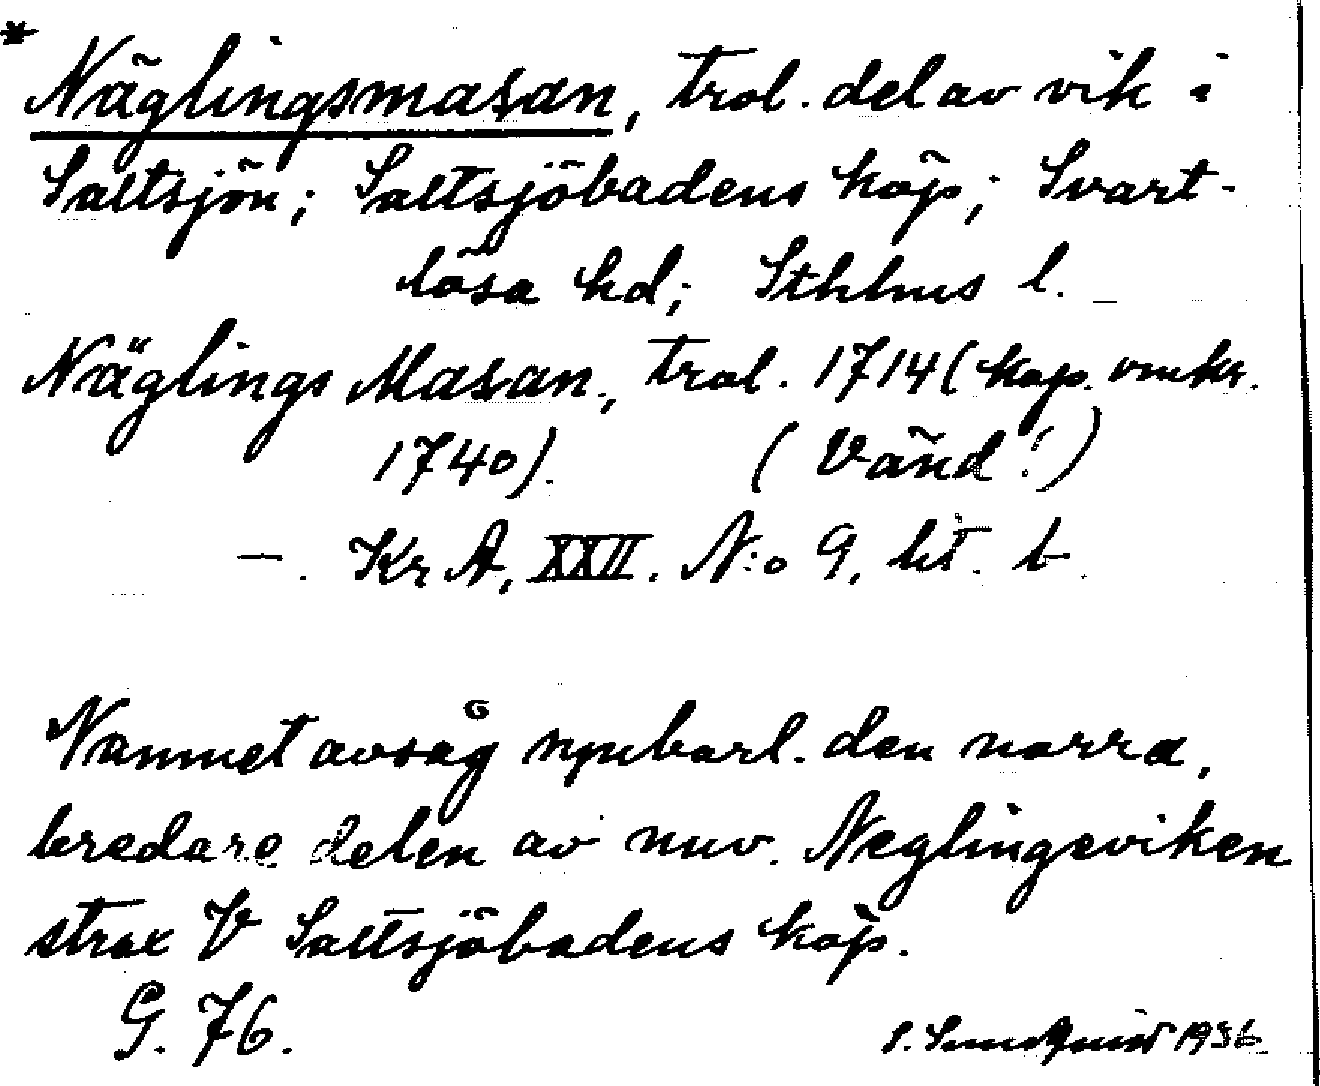 * Näglingsmasan, trol. del av vik i
Saltsjön; Saltsjöbadens köp; Svart-
lösa hd; Sthlms l.
Näglings Masan, trol. 1714 (kop. omkr.
1740). (Vänd!)
—. Kr A, XXII. N:o 9, lit. b
Namnet avsåg uppenbarl. den norra,
bredare delen av nuv. Neglingeviken
strax V Saltsjöbadens köp.
G. 76. S. Sundquist 1936